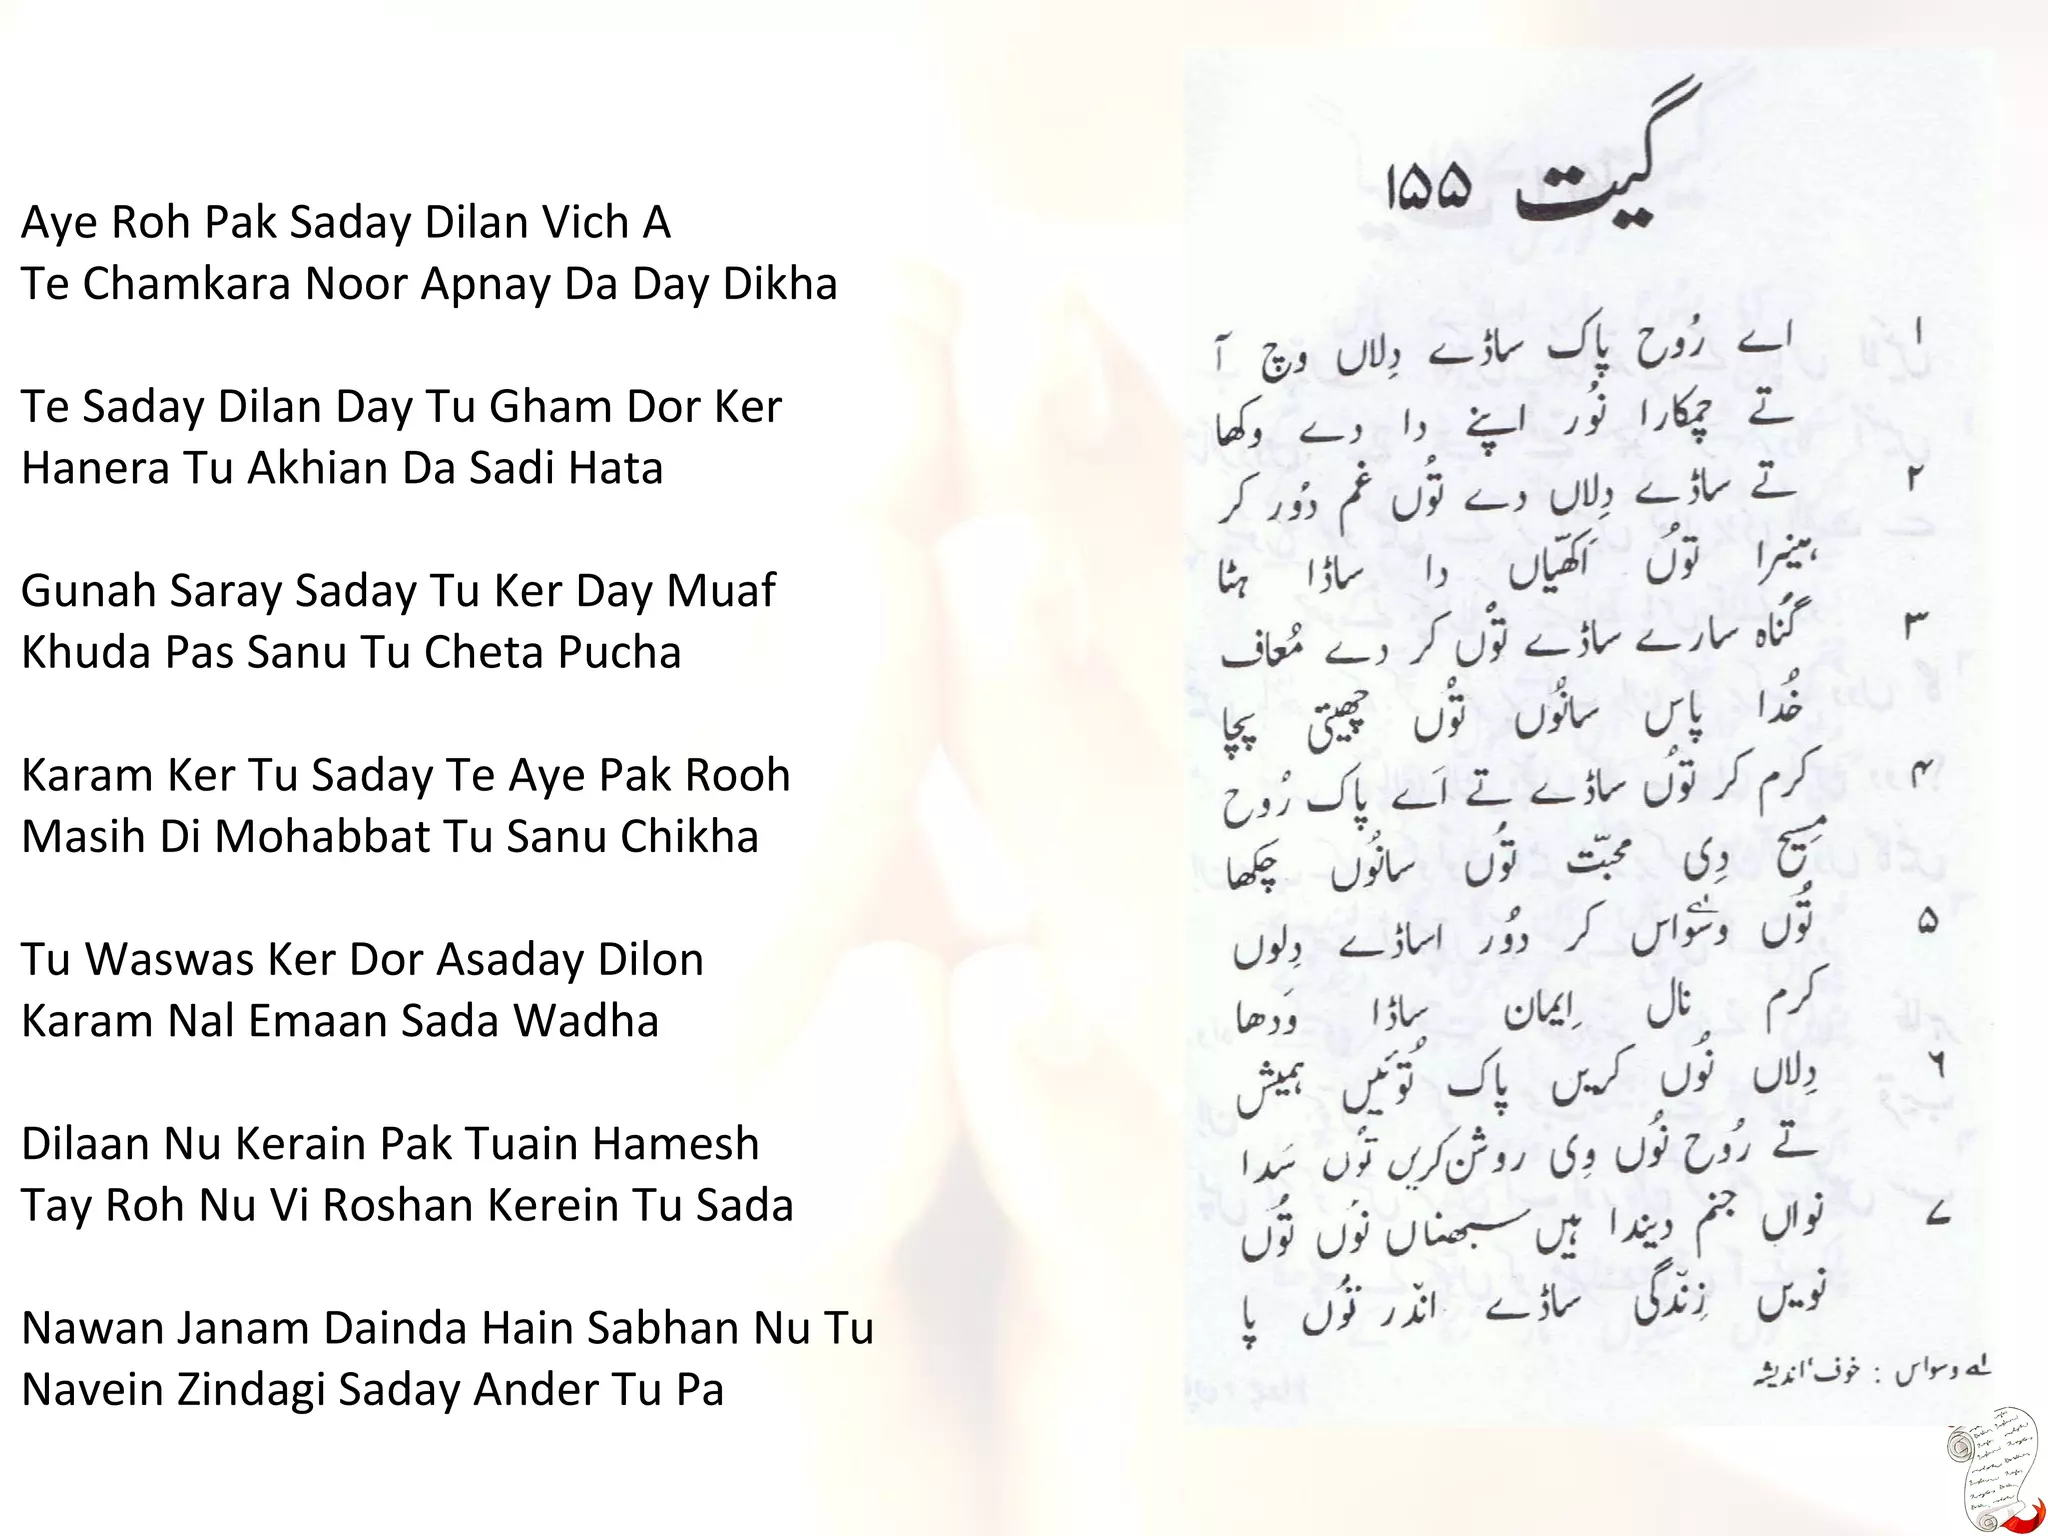 Aye Roh Pak Saday Dilan Vich A
Te Chamkara Noor Apnay Da Day Dikha
Te Saday Dilan Day Tu Gham Dor Ker
Hanera Tu Akhian Da Sadi Hata
Gunah Saray Saday Tu Ker Day Muaf
Khuda Pas Sanu Tu Cheta Pucha
Karam Ker Tu Saday Te Aye Pak Rooh
Masih Di Mohabbat Tu Sanu Chikha
Tu Waswas Ker Dor Asaday Dilon
Karam Nal Emaan Sada Wadha
Dilaan Nu Kerain Pak Tuain Hamesh
Tay Roh Nu Vi Roshan Kerein Tu Sada
Nawan Janam Dainda Hain Sabhan Nu Tu
Navein Zindagi Saday Ander Tu Pa
گیت ۱۵۵
۱ اے رُوح پاک ساڈے دِلاں وچ آ
تے چمکارا نُور اپنے دا دے وکھا
۲ تے ساڈے دِلاں دے تُوں غم دُور کر
ہنیرا تُوں اَکھیّاں دا ساڈا ہٹا
۳ گُناہ سارے ساڈے تُوں کر دے مُعاف
خُدا پاس سانُوں تُوں چھیتی پچا
۴ کرم کر تُوں ساڈے تے اَے پاک رُوح
مسِیح دِی محبّت تُوں سانُوں چکھا
۵ تُوں وسَواس کر دُور اساڈے دِلوں
کرم نال اِیمان ساڈا وَدھا
۶ دِلاں نُوں کریں پاک تُوئیں ہمیش
تے رُوح نُوں وِی روشن کریں تُوں سَدا
۷ نواں جنم دیندا ہیں سبھناں نُوں تُوں
نویں زِندگی ساڈے اندر تُوں پا
لے وسواس : خوف‘ اندیشہ